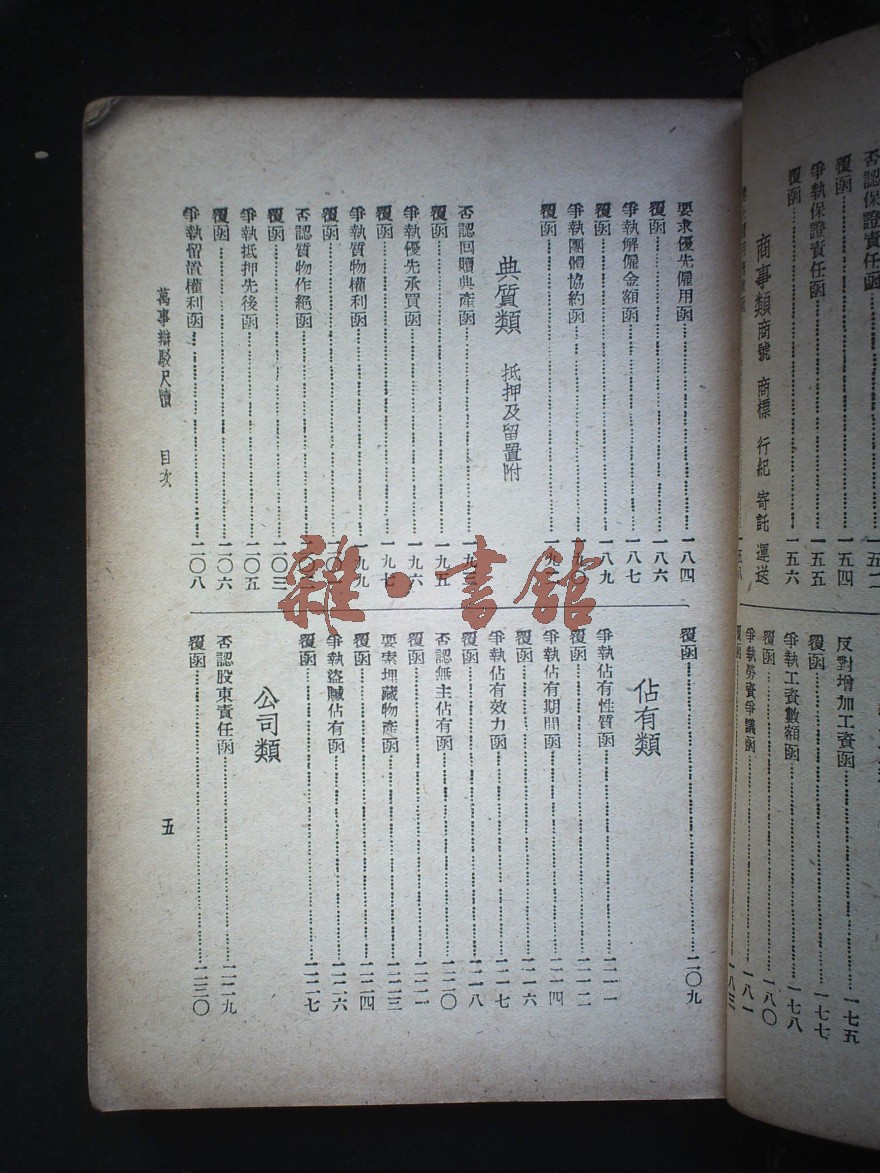 否認保證責任函
覆函……一五四
爭執保證責任函……一五五
覆函……一五六
商事類 商號 商標 行紀 寄託 運送
一五八
反對增加工資函……一七五
覆函……一七七
爭執工資數額函……一七八
覆函……一八〇
爭執勞資爭議函……一八一
覆函……一八三
要求優先僱用函……一八四
覆函……一八六
爭執解僱金額函……一八七
覆函……一八九
爭執團體協約函……一九〇
覆函……一九
典質類 抵押及留置附
否認回贖典產函……一九三
覆函……一九五
爭執優先承買函……一九六
覆函……一九七
爭執質物權利函……一九九
覆函……
否認質物作絕函……
覆函……二〇三
爭執抵押先後函……二〇五
覆函……二〇六
爭執留置權利函……二〇八
覆函……二〇九
佔有類
爭執佔有性質函……二一一
覆函……二一二
爭執佔有期間函……二一四
覆函……二一六
爭執佔有效力函……二一七
覆函……二一八
否認無主佔有函……二二〇
覆函……二二一
要索埋藏物產函……二二三
覆函……二二四
爭執盜贓佔有函……二二六
覆函……二二七
公司類
否認股東責任函……二二九
覆函……二三〇
萬事辯駁尺牘 目次
五
雜·書館